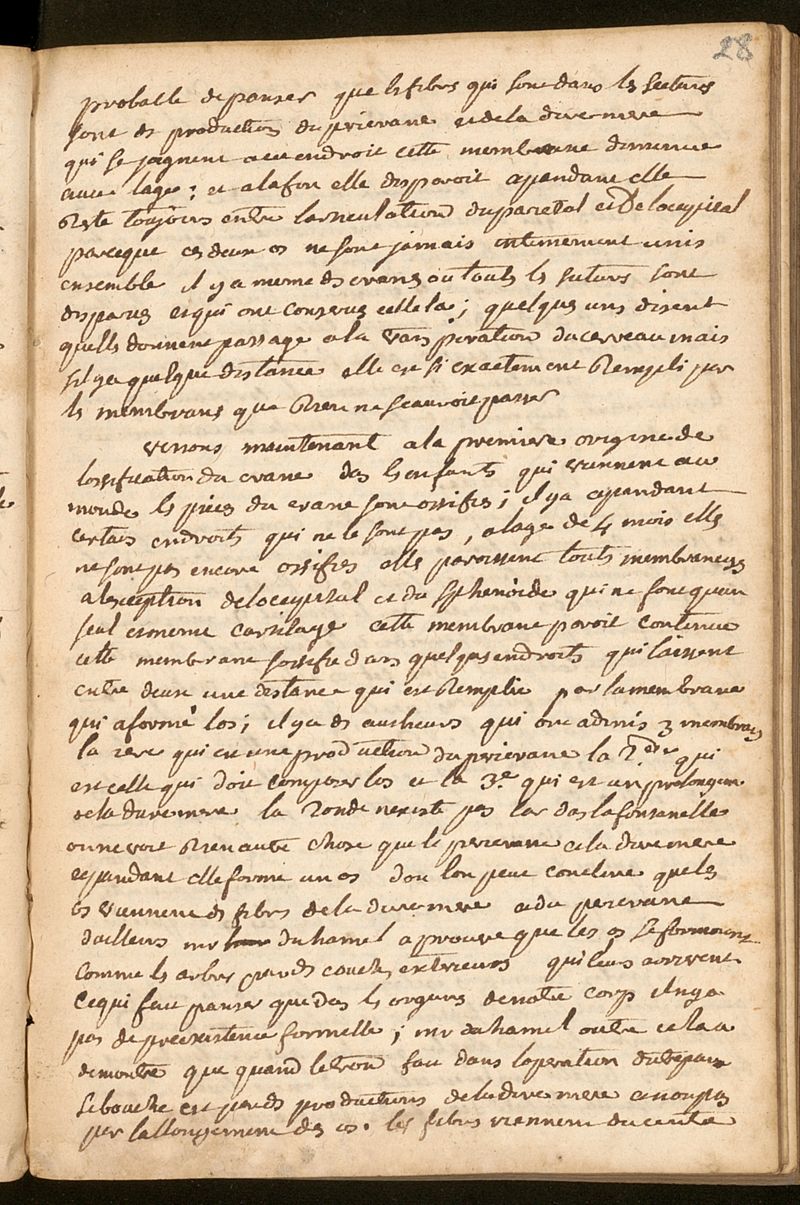 28
probable de panser que les fibres qui sont dans les sectures
sont des production du pericrane et de la dure mere
qui se joignent a cet endroit cette membrane diminue
avec lage ; et a la fin elle disparoit cependant elle
Reste toujours entre larticulation du parietal et De loccipital
parceque ces deux os ne sont jamais intimement unis
ensemble il y a meme des cranes ou touts les sutures sont
disparues et qui ont conserves celle la ; quelques uns disent
quells donnent passage a la transpiration du cerveau mais
sil y a quelque distance elle est si exactement Rempli par
les membranes que Rien ne scauroit passer
venons maintenant a la premiere origine de
lossification du crane des les enfants qui viennent au
monde les pieces du crane sont ossifies ; il y a cependant
certais endroits qui ne le sont pas, a lage de 4 mois elles
ne sont pas encore ossifies elle paroissent touts membraneuses
a lexception de loccipital et du sphenoide qui ne font quun
seul et meme cartilage cette membrane paroit continue
cette membrane sossifie dans quelques endroits qui laissent
entre deux une distance qui est Remplie par la membrane
qui a formé los ; il y a des autheurs qui ont admis 3 membranes
la 1ere qui est une production du pericrane la 2.de qui
est celle qui doit composer los et la 3.e qui est un prolongem
de la dure mere la 2onde nexiste pas car das la fontanelle
on ne voit Rien autre chose que le pericrane et la dure mere
cependant elle forme un os dou lon peut conclure que les
os viennent des fibres de la dure mere et du pericrane
dailleurs mr duhamel a prouve que les os se formoient
comme les arbres par des couches exterieurs qui leurs arrivent
ce qui fait panser que das les organes de notre corps il ny a
pas de preexistence formelle ; mr duhamel outre cela a
demontre que quand le trou fait dans loperation du trepan
se bouche cest par des productions de la dure mere et non pas
par lallongement des os. les fibres viennent du centre